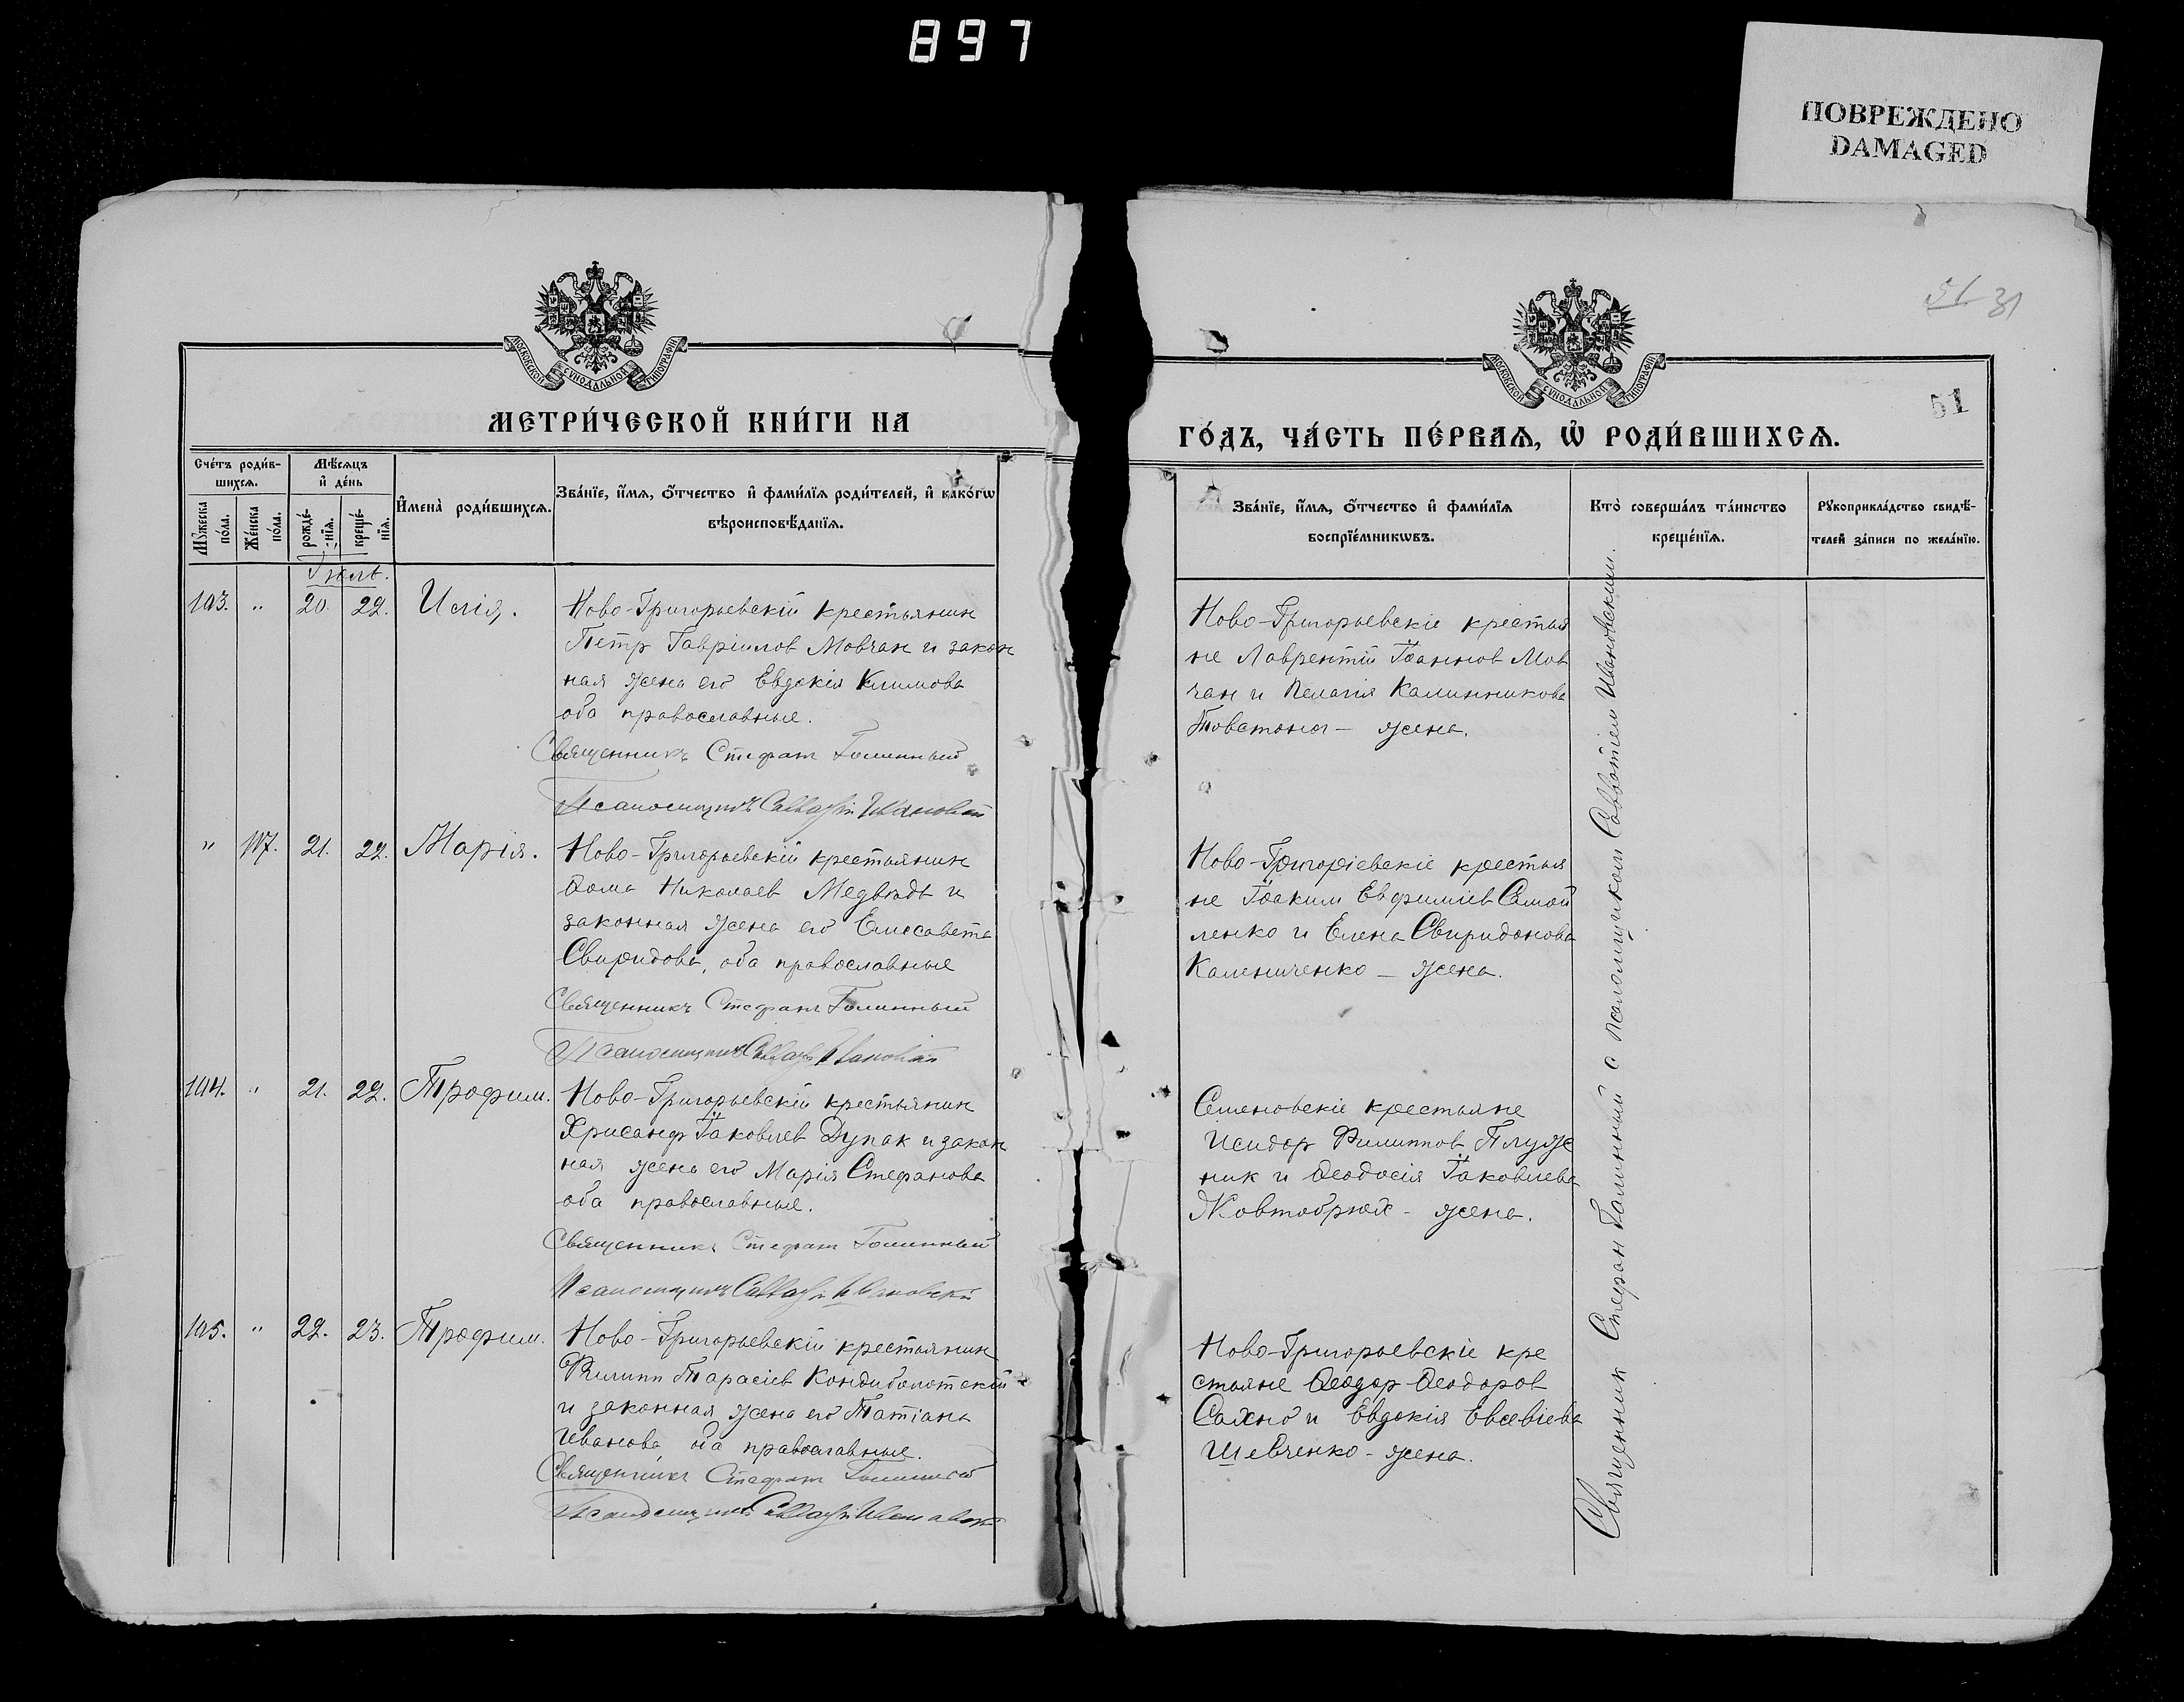 897
ПОВРЕЖДЕНО
DAMAGED
51 31
51
МОСКОВСКОЙ СѴНОДАЛЬНОЙ ТИПОГРАФІИ
МОСКОВСКОЙ СѴНОДАЛЬНОЙ ТИПОГРАФІИ
МЕТРИ́ЧЕСКОЙ КНИ́ГИ НА
ГО́ДЪ, ЧА́СТЬ ПЕ́РВАѦ, Ѡ҆ РОДИ́ВШИХСѦ.
Сче́тъ роди́в-
шихсѧ.
Мꙋжеска
по́ла.
Же́нска
по́ла.
Мѣ́сѧцъ
и҆ де́нь
рожде́-
нїѧ.
креще́-
нїѧ.
И҆мена̀ роди́вшихсѧ.
Зва́нїе, и҆́мѧ, ѻ҆́тчество и҆ фами́лїѧ роди́телей, и҆ како́гѡ
вѣроисповѣ́данїѧ.
Зва́нїе, и҆́мѧ, ѻ҆́тчество и҆ фами́лїѧ
воспрїе́мникѡвъ.
Кто̀ соверша́лъ та́инство
креще́нїѧ.
Рꙋкоприкла́дство свидѣ́-
телей за́писи по жела́нїю.
Іюль.
103. " 20. 22. Илія.
Ново-Григорьевскій крестьянин
Петр Гавріилов Мовчан и закон
ная жена его Евдокія Климова
оба православные.
Священникъ Стефанъ Голинный
Псаломщикъ Савватій Ивановскій
Ново-Григорьевскіе крестья
не Лаврентій Іоаннов Мов
чан и Пелагія Калинникова
Товстоног - жена.
" 117. 21. 22. Марія.
Ново-Григорьевскій крестьянин
Ѳома Николаев Медвѣдь и
законная жена его Елисавета
Свиридова, оба православные
Священникъ Стефанъ Голинный
Псаломщикъ Савватій Ивановскій
Ново-Григоріевскіе крестья
не Іоаким Евфиміев Самой
ленко и Елена Свиридонова
Калениченко - жена.
104. " 21. 22. Трофим.
Ново-Григорьевскій крестьянин
Хрисанф Іаковлев Дупак и закон
ная жена его Марія Стефанова
оба православные.
Священникъ Стефанъ Голинный
Псаломщикъ Савватій Ивановскій
Семеновскіе крестьяне
Исидор Филиппов Плуж
ник и Ѳеодосія Іаковлева
Жовтобрюх - жена.
105. " 22. 23. Трофим.
Ново-Григорьевскій крестьянин
Филипп Тарасіев Кондиболотскій
и законная жена его Татіана
Иванова, оба православные.
Священникъ Стефанъ Голинный
Псаломщикъ Савватій Ивановскій
Ново-Григорьевскіе кре
стьяне Ѳеодор Ѳеодоров
Сахно и Евдокія Евсевіева
Шевченко - жена.
Священник Стефан Голинный с псаломщиком Савватіем Ивановским.